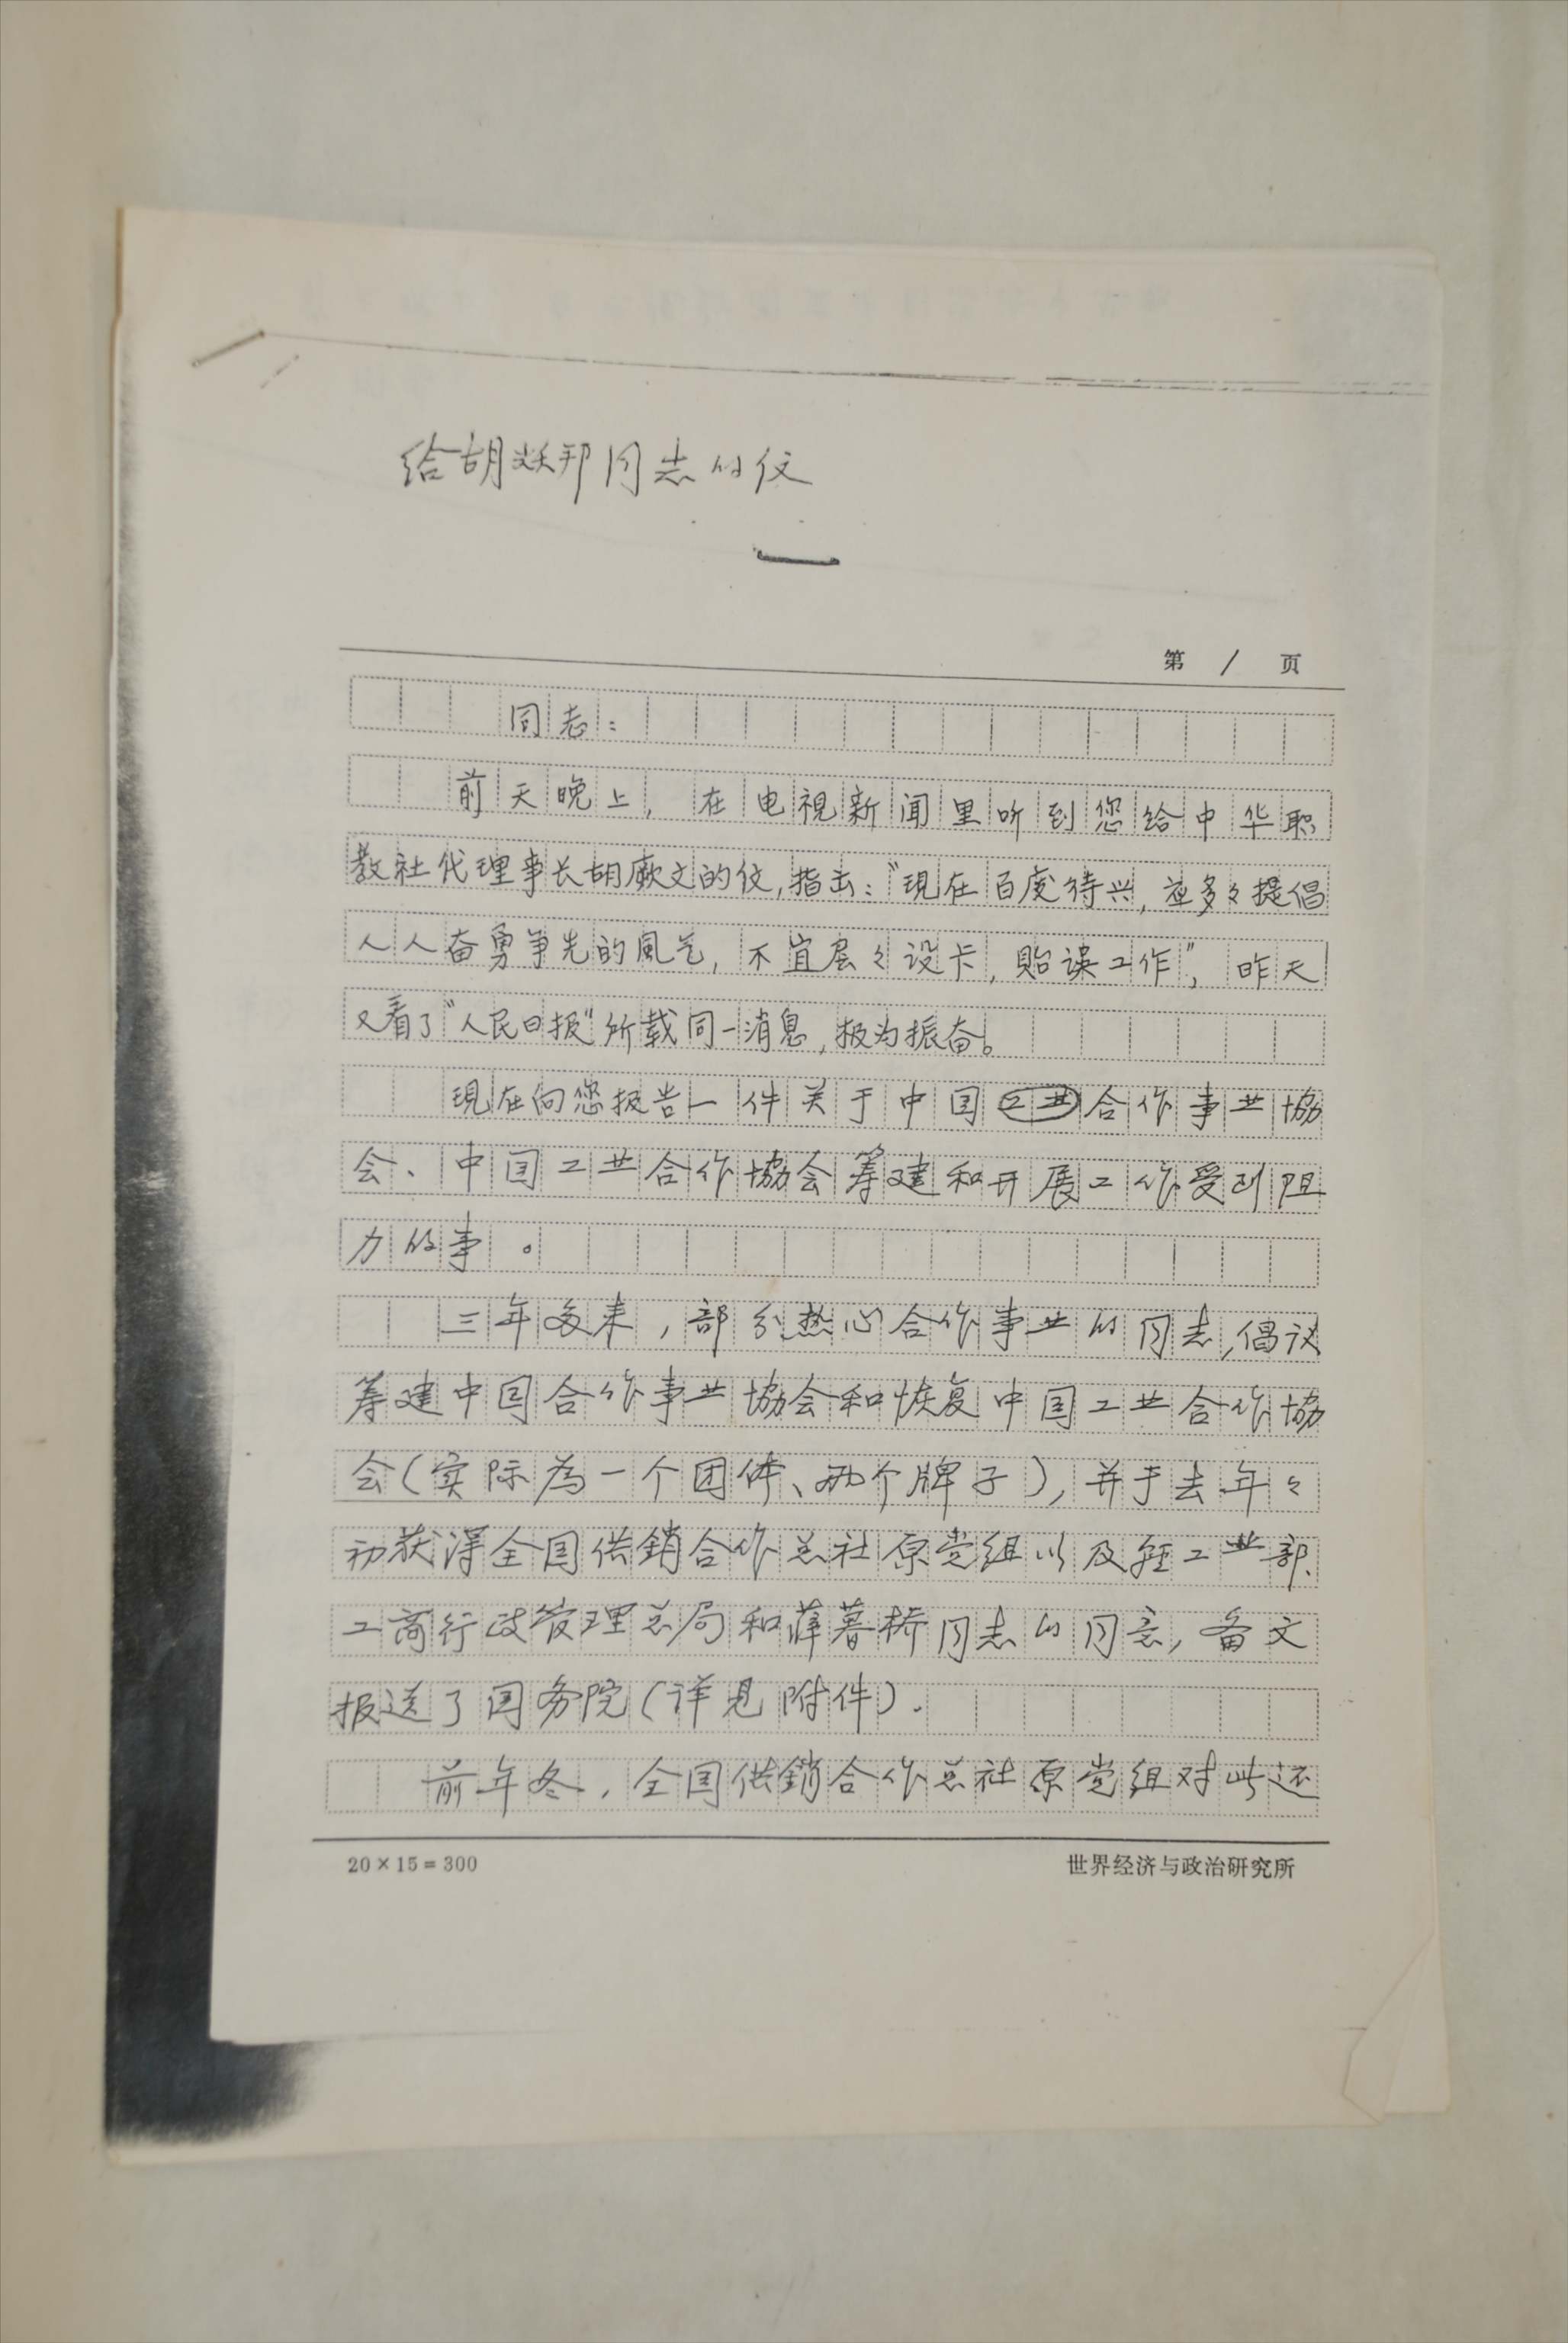 给胡耀邦同志的信
一
第 1 页
同志：
前天晚上，在电視新闻里听到您给中华职
教社代理事长胡厥文的信，指出：“現在百废待兴，应多々提倡
人人奋勇争先的風气，不宜层々设卡，贻误工作”，昨天
又看了“人民日报”所载同一消息，极为振奋。
現在向您报告一件关于中国工业合作事业協
会、中国工业合作協会筹建和开展工作受到阻
力的事。
三年多来，部分热心合作事业的同志，倡议
筹建中国合作事业協会和恢复中国工业合作協
会（实际为一个团体、两个牌子），并于去年々
初获得全国供銷合作总社原党组以及轻工业部、
工商行政管理总局和薛暮桥同志的同意，备文
报送了国务院（详见附件）.
前年冬，全国供銷合作总社原党组对此还
20×15＝300
世界经济与政治研究所